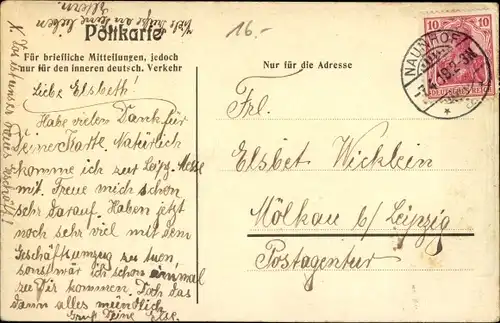 Viele Grüße an Deine lieben
Eltern.
16.-
Postkarte
Für briefliche Mitteilungen, jedoch
nur für den inneren deutsch. Verkehr
Nur für die Adresse
10 10
DEUTSCHES REICH
NAUNHOF
Liebe Elsbeth!
Habe vielen Dank für
Deine Karte. Natürlich
komme ich zur Leipz. Messe
mit. Freue mich schon
sehr darauf. Haben jetzt
noch sehr viel mit dem
Geschäftsumzug zu tuen,
sonst wär ich schon einmal
zu Dir kommen. Doch das
dann alles mündlich
Gruß Deine Else.
Frl.
Elsbet Wicklein
Mölkau b/ Leipzig
Postagentur